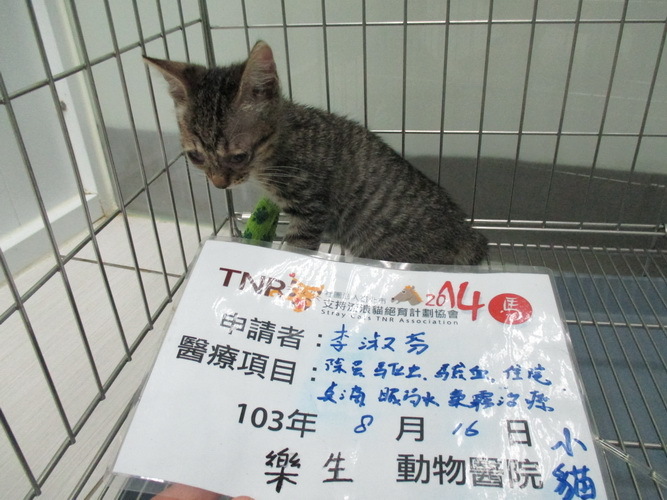 TNR 2014 馬
支持流浪貓絕育計劃協會
Stray Cats TNR Association
申請者：李淑芬
醫療項目：除蚤 驅虫、驗血、住院
點滴 眼药水 氣霧治療
103年 8月16日
樂生 動物醫院
小貓